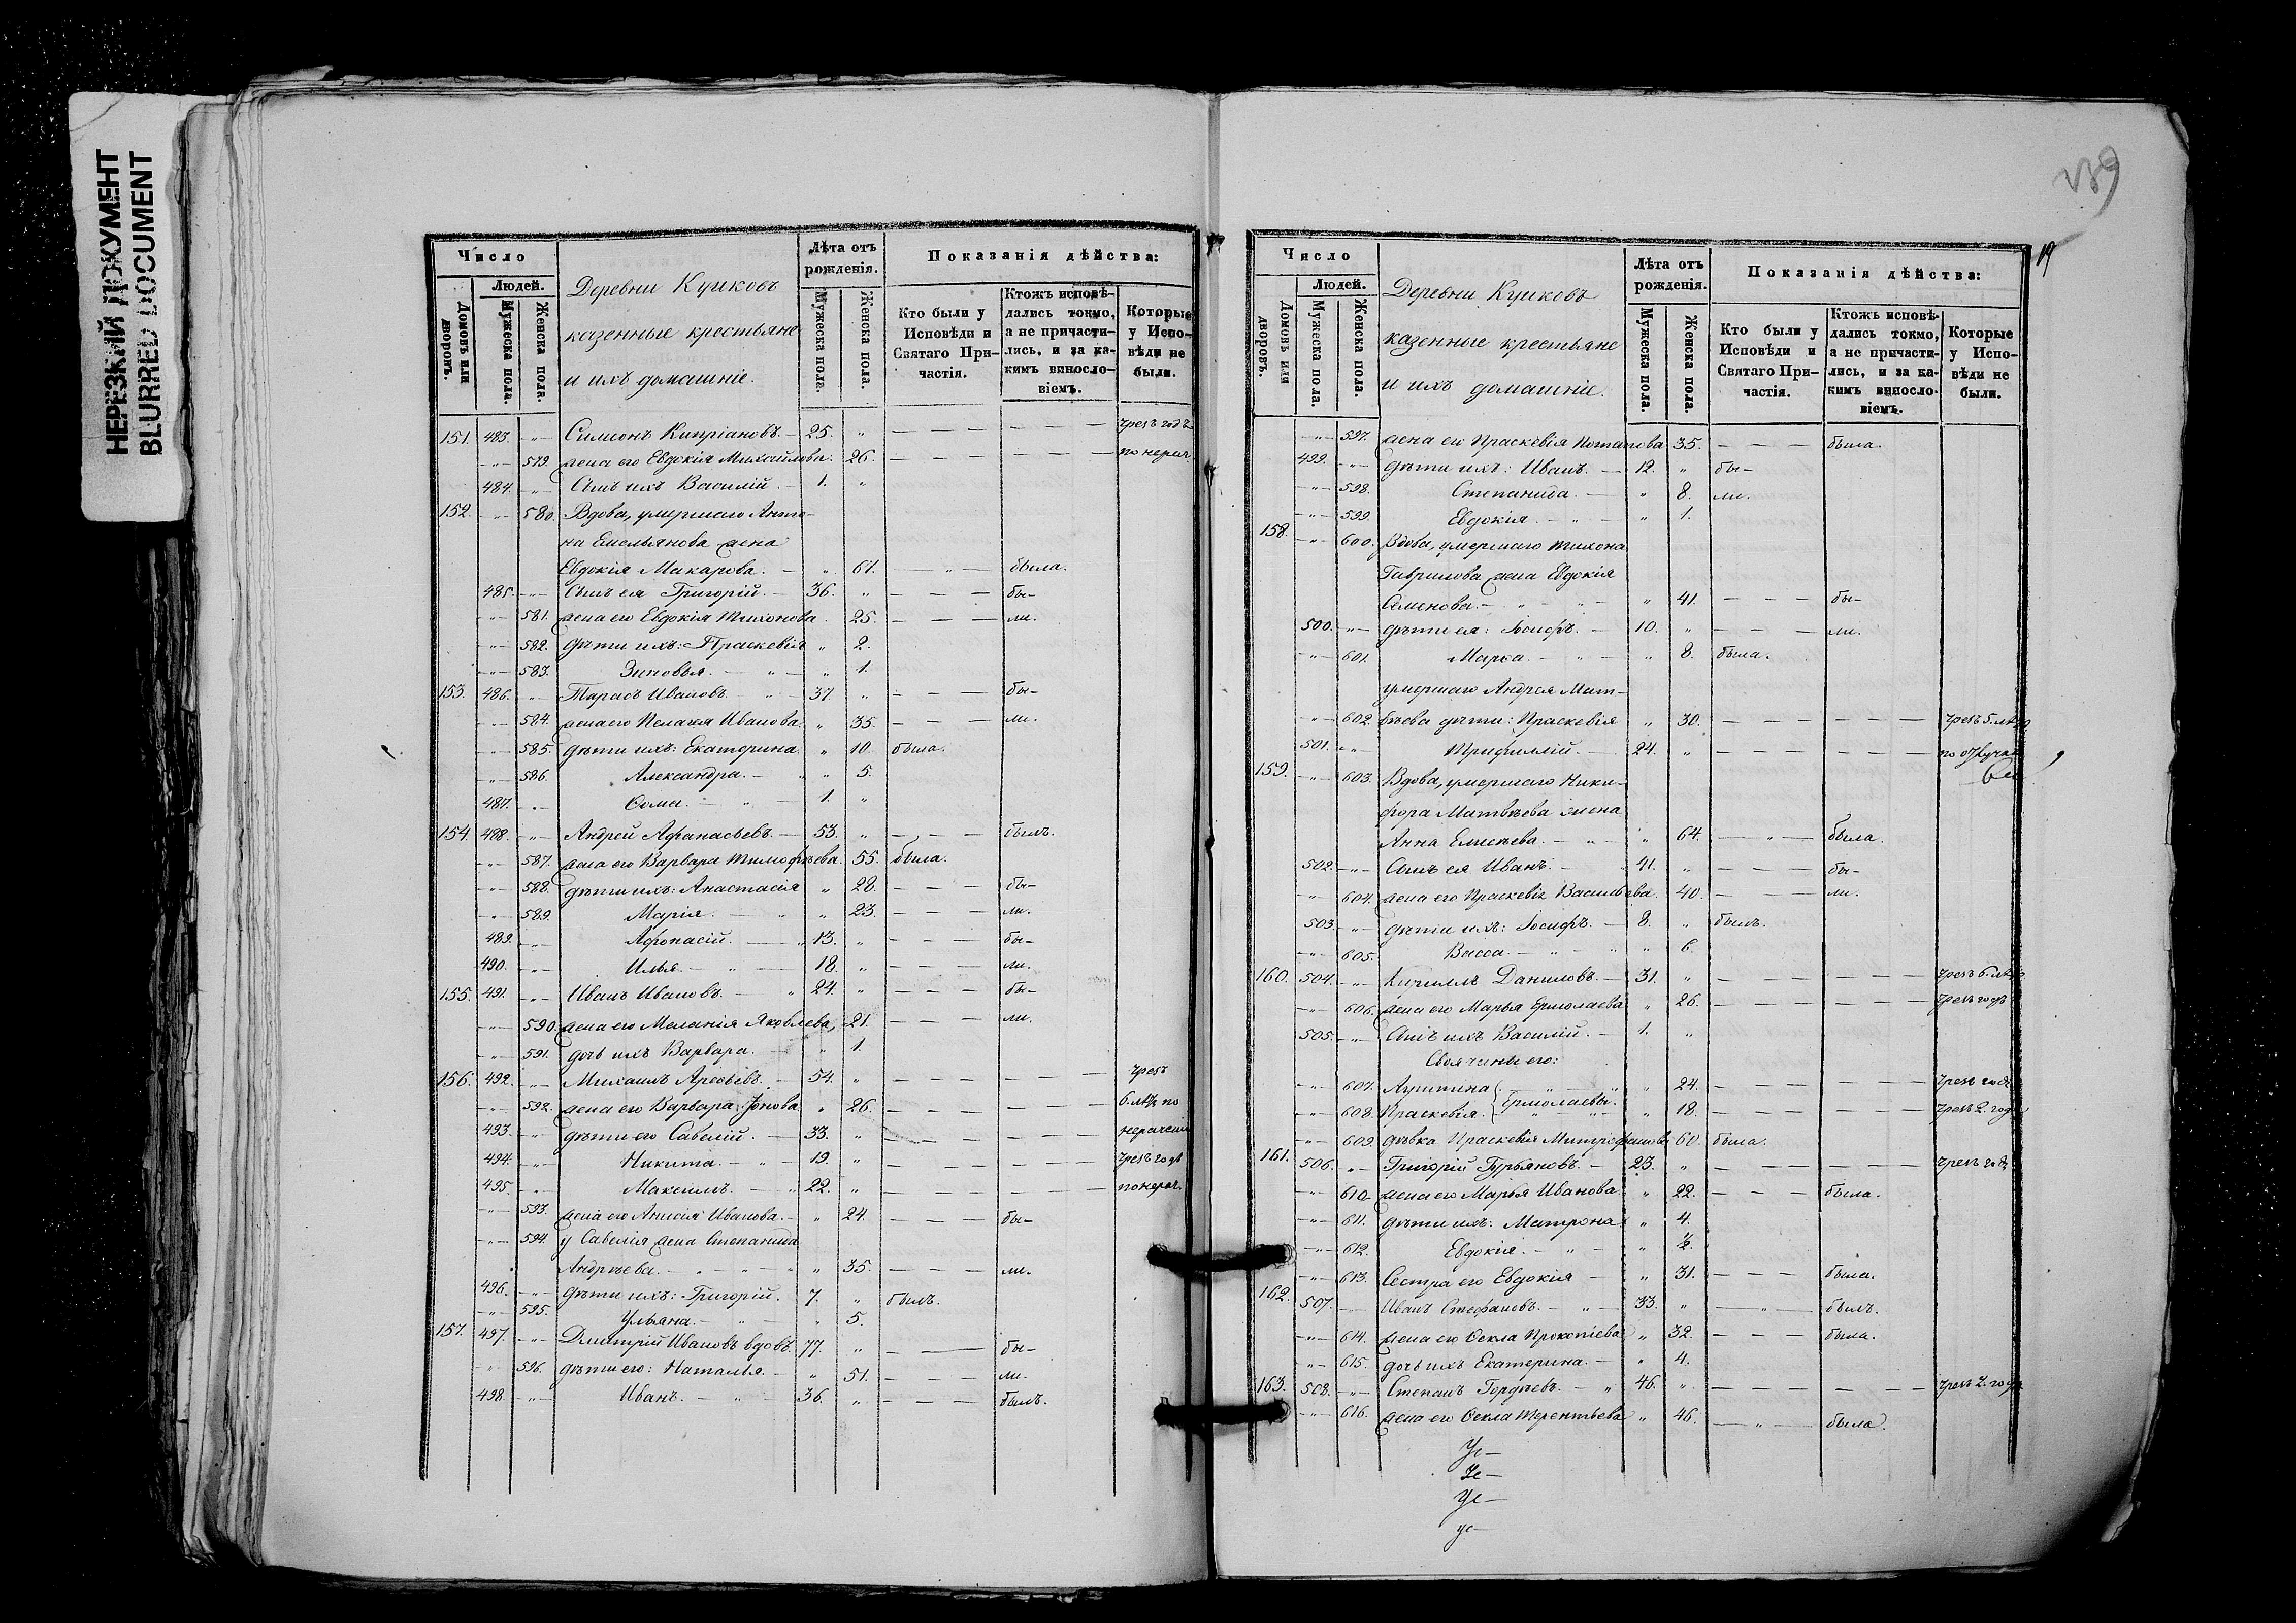 НЕРЕЗКИЙ ДОКУМЕНТ
BLURRED DOCUMENT
Число
Людей.
Домовъ или дворовъ.
Мужеска пола.
Женска пола.
Деревни Кушковъ
казенные крестьяне
и ихъ домашніе.
Лѣта отъ рожденія.
Мужеска пола.
Женска пола.
Показанія дѣйства:
Кто были у Исповѣди и Святаго Причастія.
Ктожъ исповѣдались токмо, а не причастились, и за какимъ винословіемъ.
Которые у Исповѣди не были.
151. 483. -"- Симеонъ Кипріановъ. — 25. " — — — — — — чрезъ годъ
-"- 579. жена его Евдокія Михайлова. 26. — — — — — — по нерач.
484. -"- Сынъ ихъ Василій. — 1. "
152. -"- 580. Вдова, умершаго Анто-
на Емельянова жена
Евдокія Макарова. — " 67. — " — была.
485. -"- Сынъ ея Григорій. — 36. " — — — бы-
-"- 581. жена его Евдокія Тихонова. 25. — — — ли.
-"- 582. дѣти ихъ: Праскевія " 2.
-"- 583. Зиновья. — " — " 1.
153. 486. -"- Тарасъ Ивановъ. " — 37. " — — — бы-
-"- 584. жена его Пелагея Иванова. " 35. — — — ли.
-"- 585. дѣти ихъ: Екатерина " 10. была.
-"- 586. Александра. — " " 5.
487. -"- Ѳома. — " — 1. "
154. 488. -"- Андрей Афанасьевъ. — 53. " — — — былъ.
-"- 587. жена его Варвара Тимофѣева. 55. была.
-"- 588. дѣти ихъ: Анастасія " 28. — — — бы-
-"- 589. Марія. — " " 23. — — — ли.
489. -"- Афонасій. — " 13. " — — — бы-
490. -"- Илья. — " — 18. " — — — ли.
155. 491. -"- Иванъ Ивановъ. — " 24. " — — — бы-
-"- 590. жена его Меланія Яковлева, 21. — — — ли.
-"- 591. дочь ихъ Варвара. — " 1.
156. 492. -"- Михаилъ — 54. " — — — — — чрезъ
-"- 592. жена его Варвара Іонова. " 26. — — — — — 6 лѣтъ по
493. -"- дѣти его Савелій. — 33. " — — — — — нерачен.
494. -"- Никита. — " — 19. " — — — — — чрезъ годъ
495. -"- Максимъ. — " 22. " — — — — — по нерач.
-"- 593. жена его Анисія Иванова. — " 24. — — — бы-
-"- 594. у Савелія жена Степанида
Андрѣева. — " — " — " " 35. — — — ли.
496. -"- дѣти ихъ: Григорій. 7. " былъ.
-"- 595. Ульяна. — " — " 5.
157. 497. -"- Дмитрій Ивановъ вдовъ. 77. " — — бы-
-"- 596. дѣти его: Наталья. — " 51. — — — ли.
498. -"- Иванъ. — " — 36. " — — — былъ.
239
19
Число
Людей.
Домовъ или дворовъ.
Мужеска пола.
Женска пола.
Деревни Кушковъ
казенные крестьяне
и ихъ домашніе.
Лѣта отъ рожденія.
Мужеска пола.
Женска пола.
Показанія дѣйства:
Кто были у Исповѣди и Святаго Причастія.
Ктожъ исповѣдались токмо, а не причастились, и за какимъ винословіемъ.
Которые у Исповѣди не были.
-"- 597. жена его Праскевія Потапова 35. — — — была.
499. -"- дѣти ихъ: Иванъ. — 12. " бы-
-"- 598. Степанида. — " 8. ли.
-"- 599. Евдокія. — " — " 1.
158. -"- 600. Вдова, умершаго Тихона
Гаврилова жена Евдокія
Семенова. — " — " — " 41. — — — бы-
500. -"- дѣти ея: Іосифъ. — 10. " — — — ли.
-"- 601. Марѳа. — " — " 8. была.
умершаго Андрея Мат-
-"- 602. вѣева дѣти: Праскевія " 30. — — — — — чрезъ 5. лѣтъ
501. -"- Трифиллій. — 24. " — — — — — по отлуч
159. -"- 603. Вдова, умершаго Ники-
фора Матвѣева жена
Анна Елисѣева. — " — " 64. — " — была.
502. -"- Сынъ ея Иванъ. — " 41. " — — бы-
-"- 604. жена его Праскевія Васильева. 40. — — ли.
503. -"- дѣти ихъ: Іосифъ. — 8. " былъ.
-"- 605. Васса. — " — " " 6.
160. 504. -"- Кириллъ Даниловъ. — 31. " — — — — — чрезъ 6 лѣтъ
-"- 606. жена его Марья Ермолаева " 26. — — — — — чрезъ годъ
505. -"- Сынъ ихъ Василій. — 1. "
Своячины его:
-"- 607. Агрипина — " — " " 24. — — — — — чрезъ годъ
Ермолаевы.
-"- 608. Праскевія. " " " 18. — — — — — чрезъ 2. года
-"- 609. дѣвка Праскевія Митрофанова 60. была.
161. 506. -"- Григорій Гурьяновъ. — 23. " — — — — — чрезъ годъ
-"- 610. жена его Марья Иванова " 22. — — — была.
-"- 611. дѣти ихъ: Матрона " 4.
-"- 612. Евдокія. — " — " ½.
-"- 613. Сестра его Евдокія — " 31. — — — была.
162. 507. — Иванъ Стефановъ. — " — 33. " — " — былъ.
-"- 614. жена его Ѳекла Прокопіева " 32. — — — была.
-"- 615. дочь ихъ Екатерина. — " 4.
163. 508. -"- Степанъ Гордѣевъ. — " 46. " — — — — — чрезъ 2. года
-"- 616. жена его Ѳекла Терентьева " 46. — " — была.